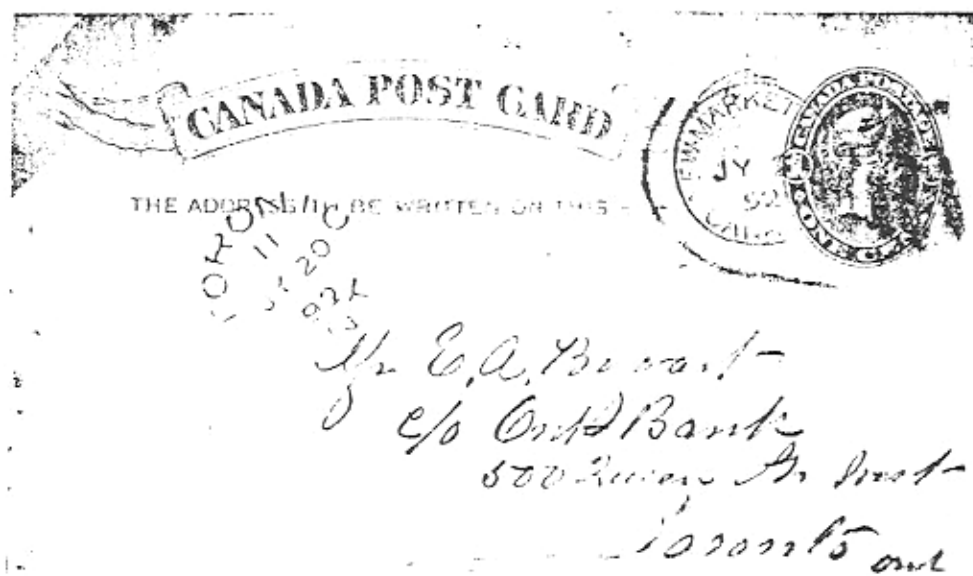 CANADA POST CARD
THE ADDRESS TO BE WRITTEN ON THIS
MARKET
JY
92
CANADA POSTAGE
ONE
TORON
11
20
92
Mr E. A. Bogart
c/o Ont Bank
500 Queen St West
Toronto Ont